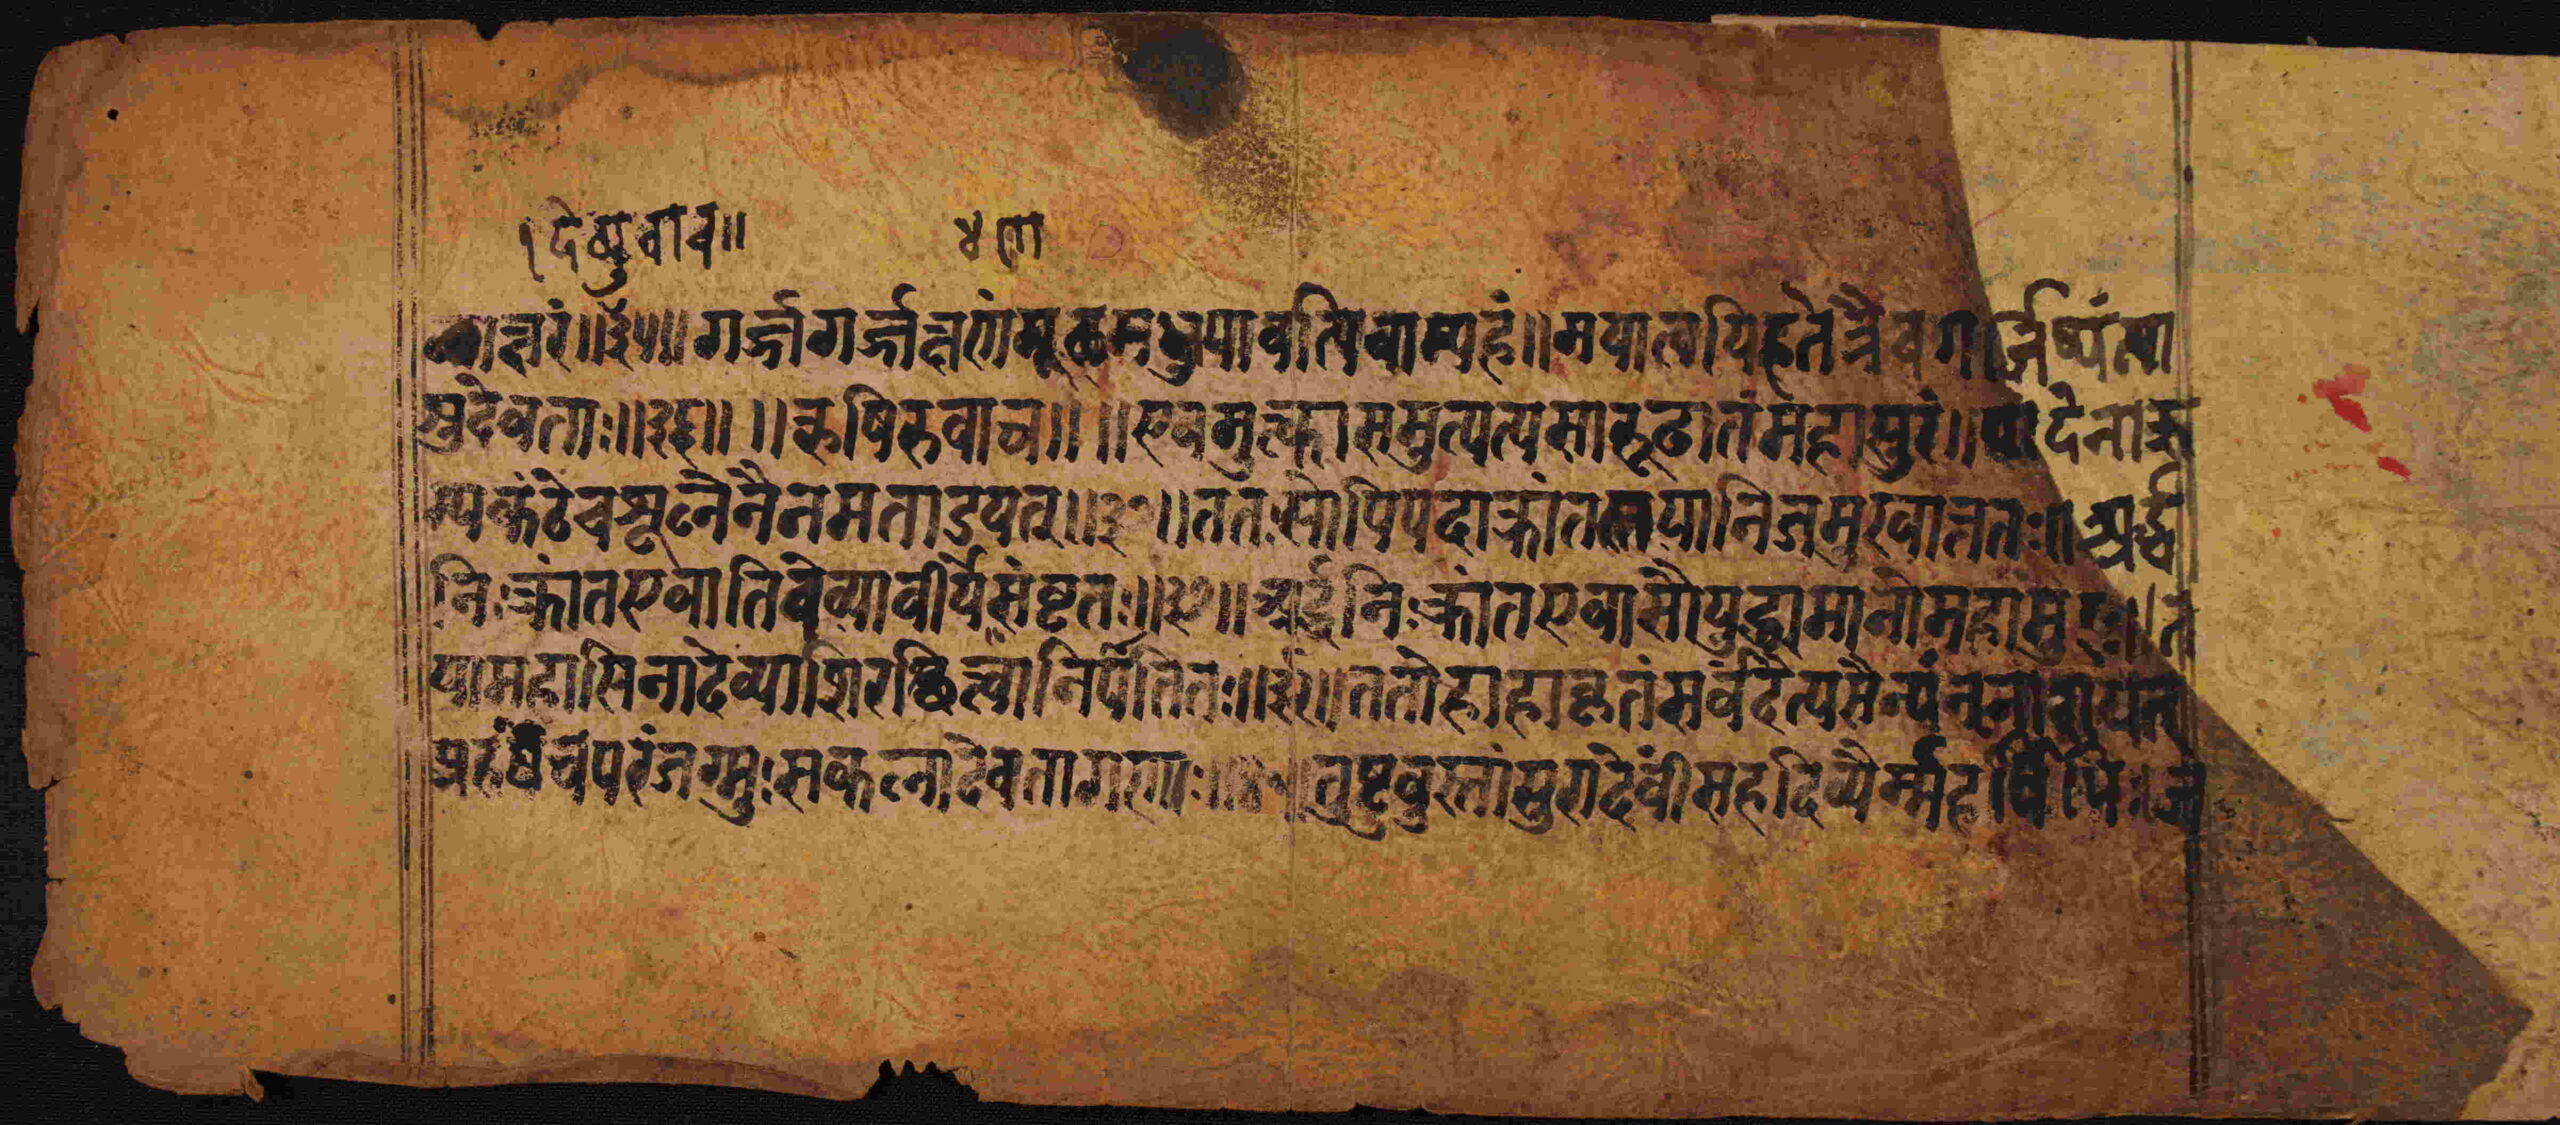 ।देव्युवाच॥ ४ णा
लाक्षरं॥॥३५॥ गर्ज्जगर्ज्जक्षणंमूढमधुयावत्पिवाम्यहं॥मयात्वयिहतेत्रैवगर्जिष्यंत्या
सुदेवताः॥॥३६॥ ॥ऋषिरुवाच॥ ॥एवमुत्क्वासमुत्पत्यसारूढातंमहासुरं॥पादेनाक्र
म्यकंठेचशूलेनैनमताडयत्॥३७॥ततःसोपिपदाक्रांतस्तयानिजमुखात्ततः॥अर्द्ध
निःक्रांतएवातिदेव्यावीर्यसंवृतः॥३८॥अर्द्धनिःक्रांतएवासौयुद्ध्यमानोमहासुरः॥त
यामहासिनादेव्याशिरश्छित्त्वानिपातितः॥३९॥ततोहाहाकृतंसर्वंदैत्यसैन्यंननाशयत्
प्रहर्षंचपरंजग्मुःसकलादेवतागणाः॥४०॥तुष्टुवुस्तांसुरादेवींसहदिव्यैर्म्महर्षिभिः॥ज